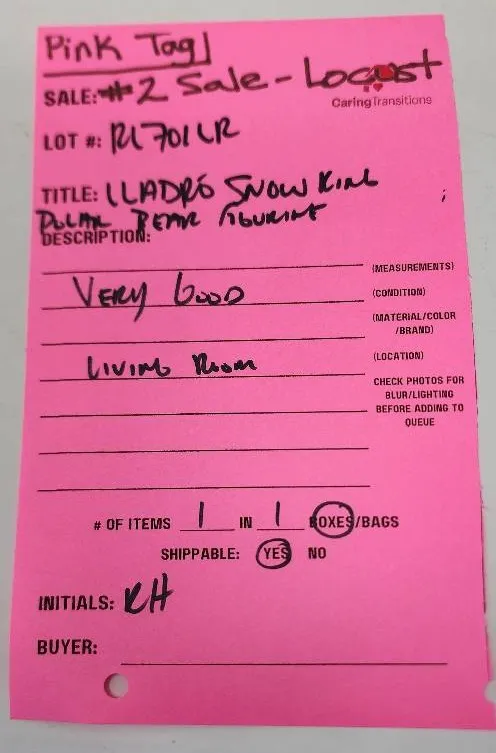 Pink Tag
SALE: #2 Sale - Locust
CaringTransitions
LOT #: RL701LR
TITLE: LLADRÓ SNOW KING
POLAR BEAR FIGURINE
DESCRIPTION:
(MEASUREMENTS)
VERY GOOD (CONDITION)
(MATERIAL/COLOR
/BRAND)
LIVING ROOM (LOCATION)
CHECK PHOTOS FOR
BLUR/LIGHTING
BEFORE ADDING TO
QUEUE
# OF ITEMS 1 IN 1 BOXES/BAGS
SHIPPABLE: YES NO
INITIALS: RH
BUYER: